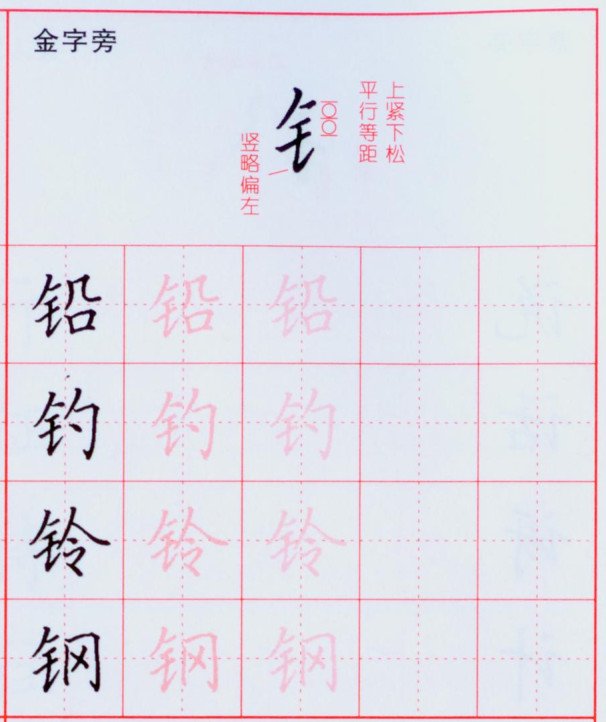 金字旁
钅
上紧下松
平行等距
竖略偏左
铅 铅 铅
钓 钓 钓
铃 铃 铃
钢 钢 钢